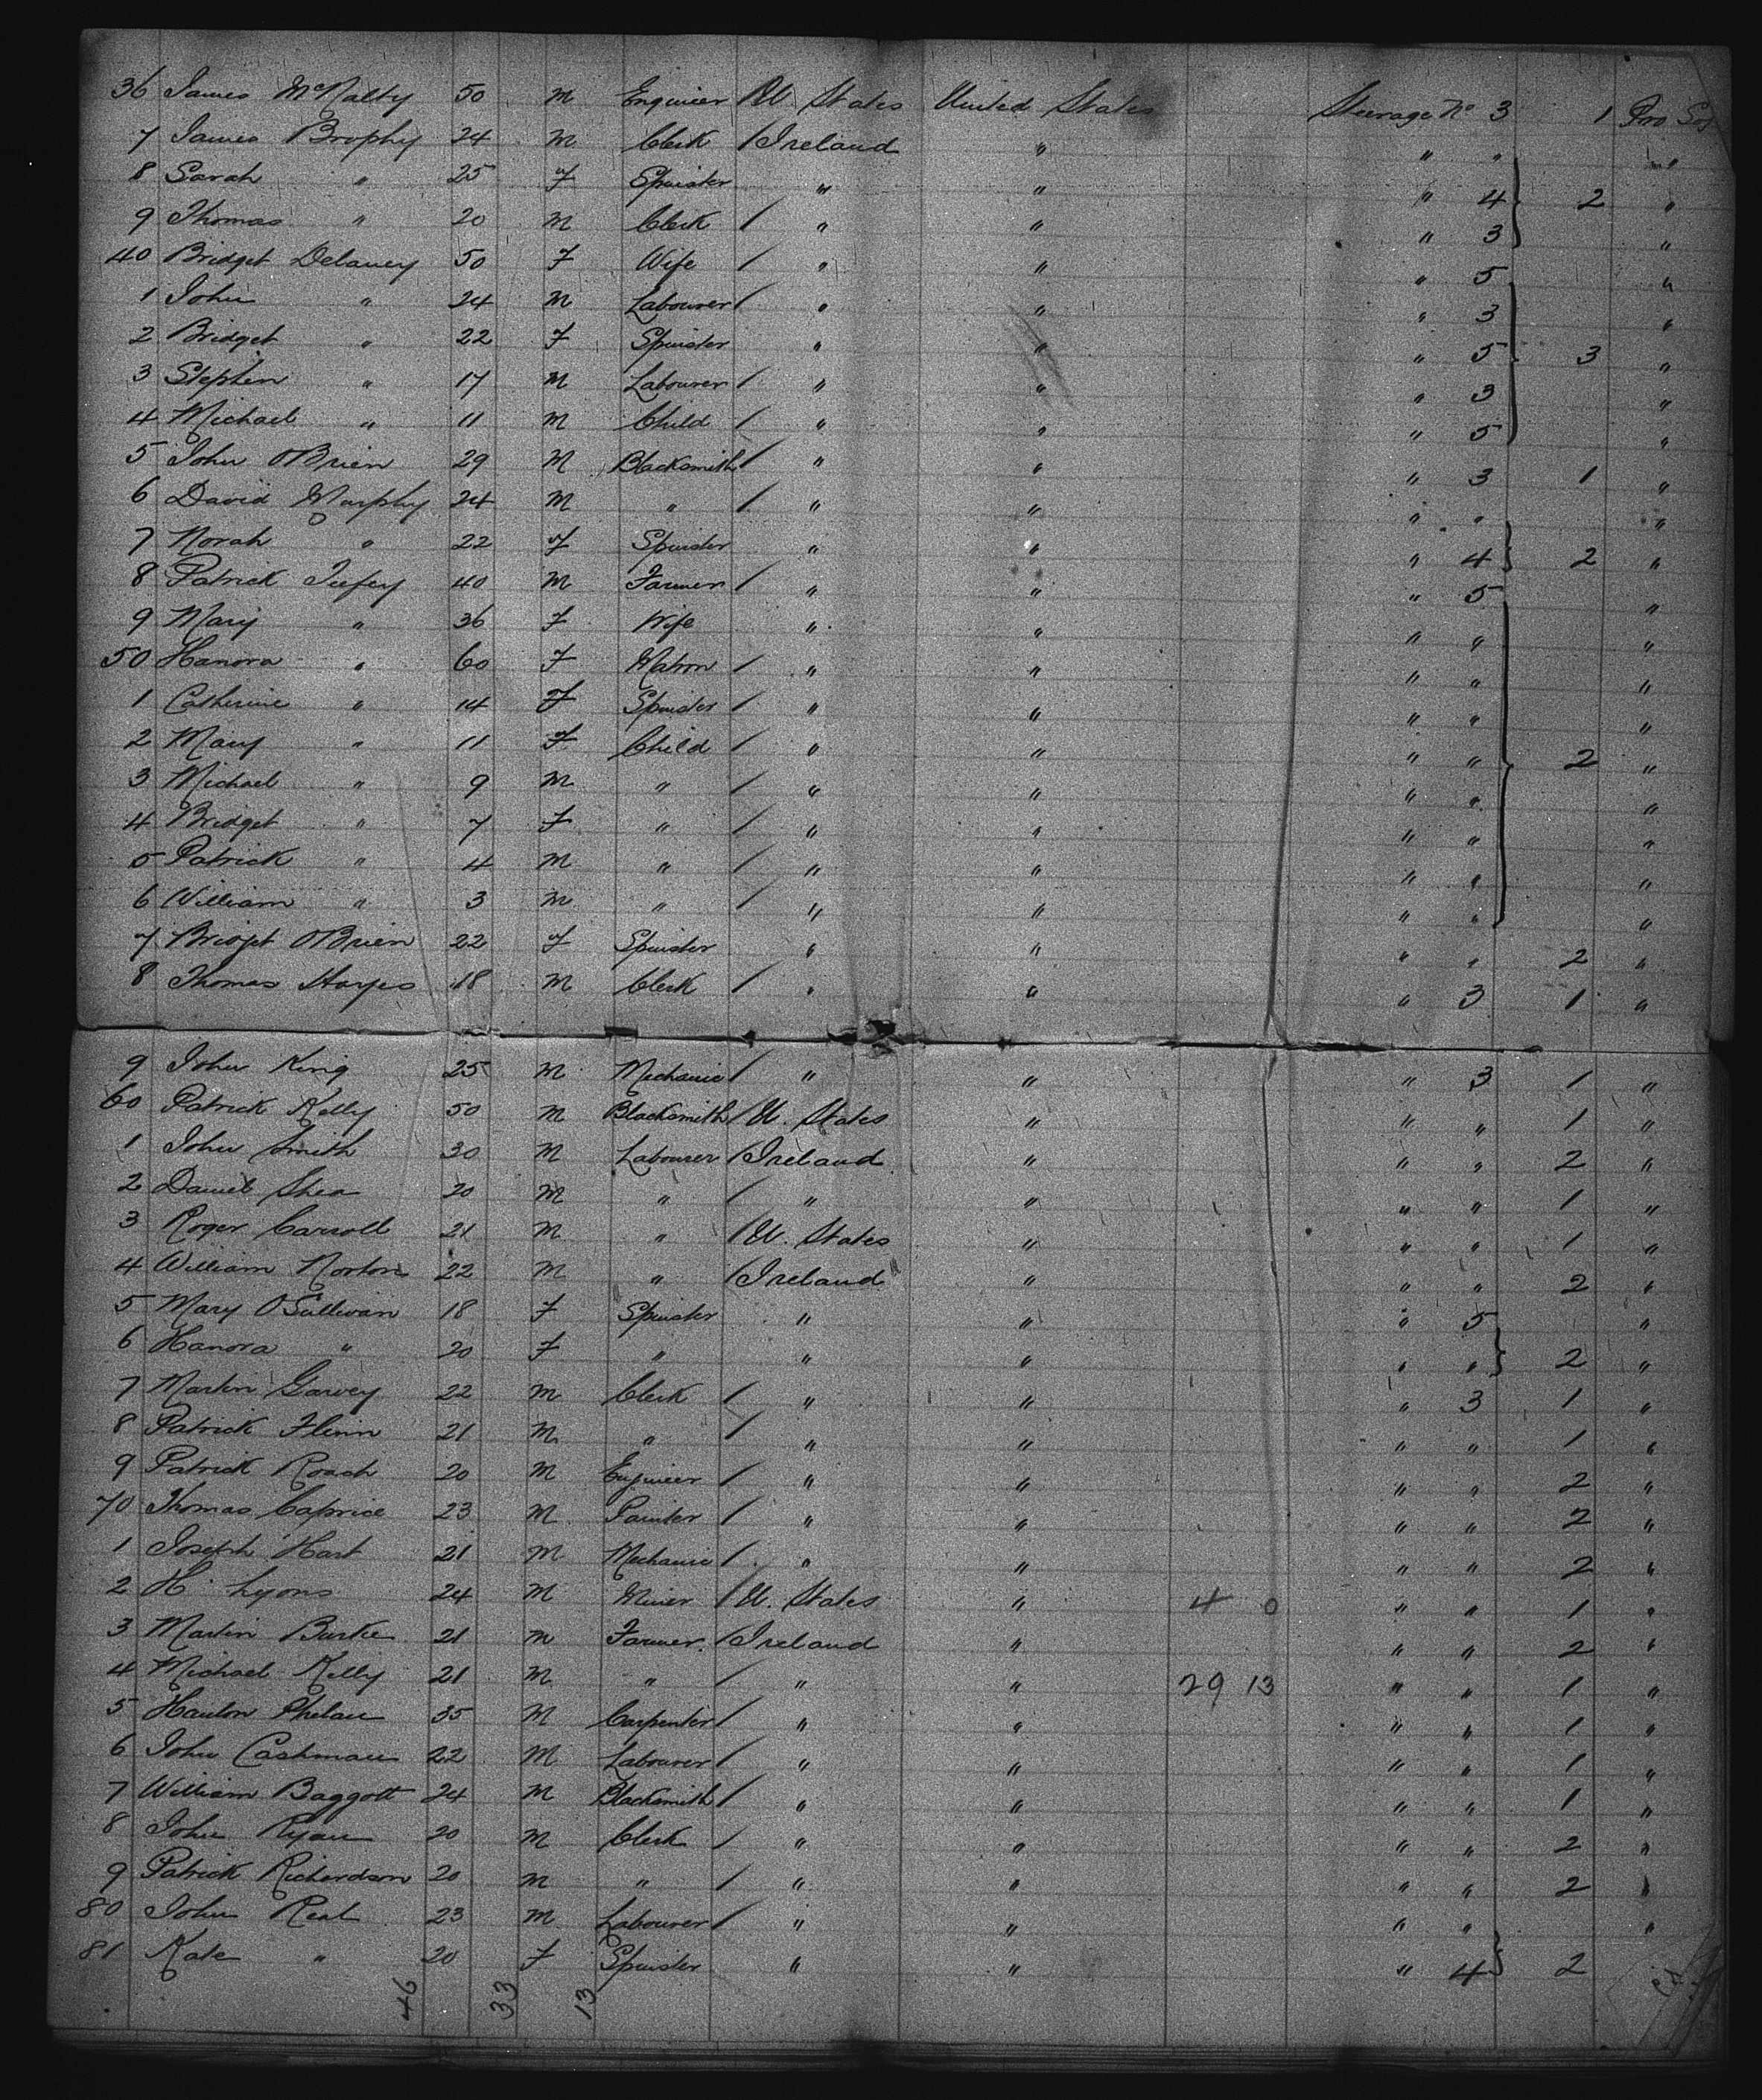 36 James McNalty 50 M Engineer / U. States United States Steerage No 3 1 Pro Soj
7 James Brophy 24 M Clerk / Ireland " " " "
8 Sarah " 25 F Spinster " " " 4 2 "
9 Thomas " 20 M Clerk / " " " 3 "
40 Bridget Delaney 50 F Wife / " " " 5 "
1 John " 24 M Labourer / " " " 3 "
2 Bridget " 22 F Spinster " " " 5 3 "
3 Stephen " 17 M Labourer / " " " 3 "
4 Michael " 11 M Child / " " " 5 "
5 John OBrien 29 M Blacksmith / " " " 3 1 "
6 David Murphy 24 M " / " " " " "
7 Norah " 22 F Spinster " " " 4 2 "
8 Patrick 40 M Farmer / " " " 5 "
9 Mary " 36 F Wife " " " " "
50 Hanora " 60 F Matron / " " " " "
1 Catherine " 14 F Spinster / " " " " "
2 Mary " 11 F Child / " " " " 2 "
3 Michael " 9 M " / " " " " "
4 Bridget " 7 F " / " " " " "
5 Patrick " 4 M " / " " " " "
6 William " 3 M " / " " " " "
7 Bridget OBrien 22 F Spinster " " " " 2 "
8 Thomas Hayes 18 M Clerk / " " " 3 1 "
9 John King 25 M Mechanic / " " " 3 1 "
60 Patrick Kelly 50 M Blacksmith / U. States " " " 1 "
1 John Smith 30 M Labourer / Ireland " " " 2 "
2 Daniel Shea 20 M " / " " " " 1 "
3 Roger Carroll 21 M " / U. States " " " 1 "
4 William Norton 22 M " / Ireland " " " 2 "
5 Mary OSullivan 18 F Spinster " " " 5 "
6 Hanora " 20 F " " " " " 2 "
7 Martin Garvey 22 M Clerk / " " " 3 1 "
8 Patrick Flinn 21 M " / " " " " 1 "
9 Patrick Roach 20 M Engineer / " " " " 2 "
70 Thomas Caprice 23 M Painter / " " " " 2 "
1 Joseph Hart 21 M Mechanic / " " " " 2 "
2 H. Lyons 24 M Miner / U. States " 4 0 " " 1 "
3 Martin Burke 21 M Farmer / Ireland " " " 2 "
4 Michael Kelly 21 M " / " " 29 13 " " 1 "
5 Phelan 35 M Carpenter / " " " " 1 "
6 John Cashman 22 M Labourer / " " " " 1 "
7 William Baggott 24 M Blacksmith / " " " " 1 "
8 John Ryan 20 M Clerk / " " " " 2 "
9 Patrick Richardson 20 M " / " " " " 2 "
80 John Real 23 M Labourer / " " " " "
81 Kate " 20 F Spinster " " " 4 2
46 33 13